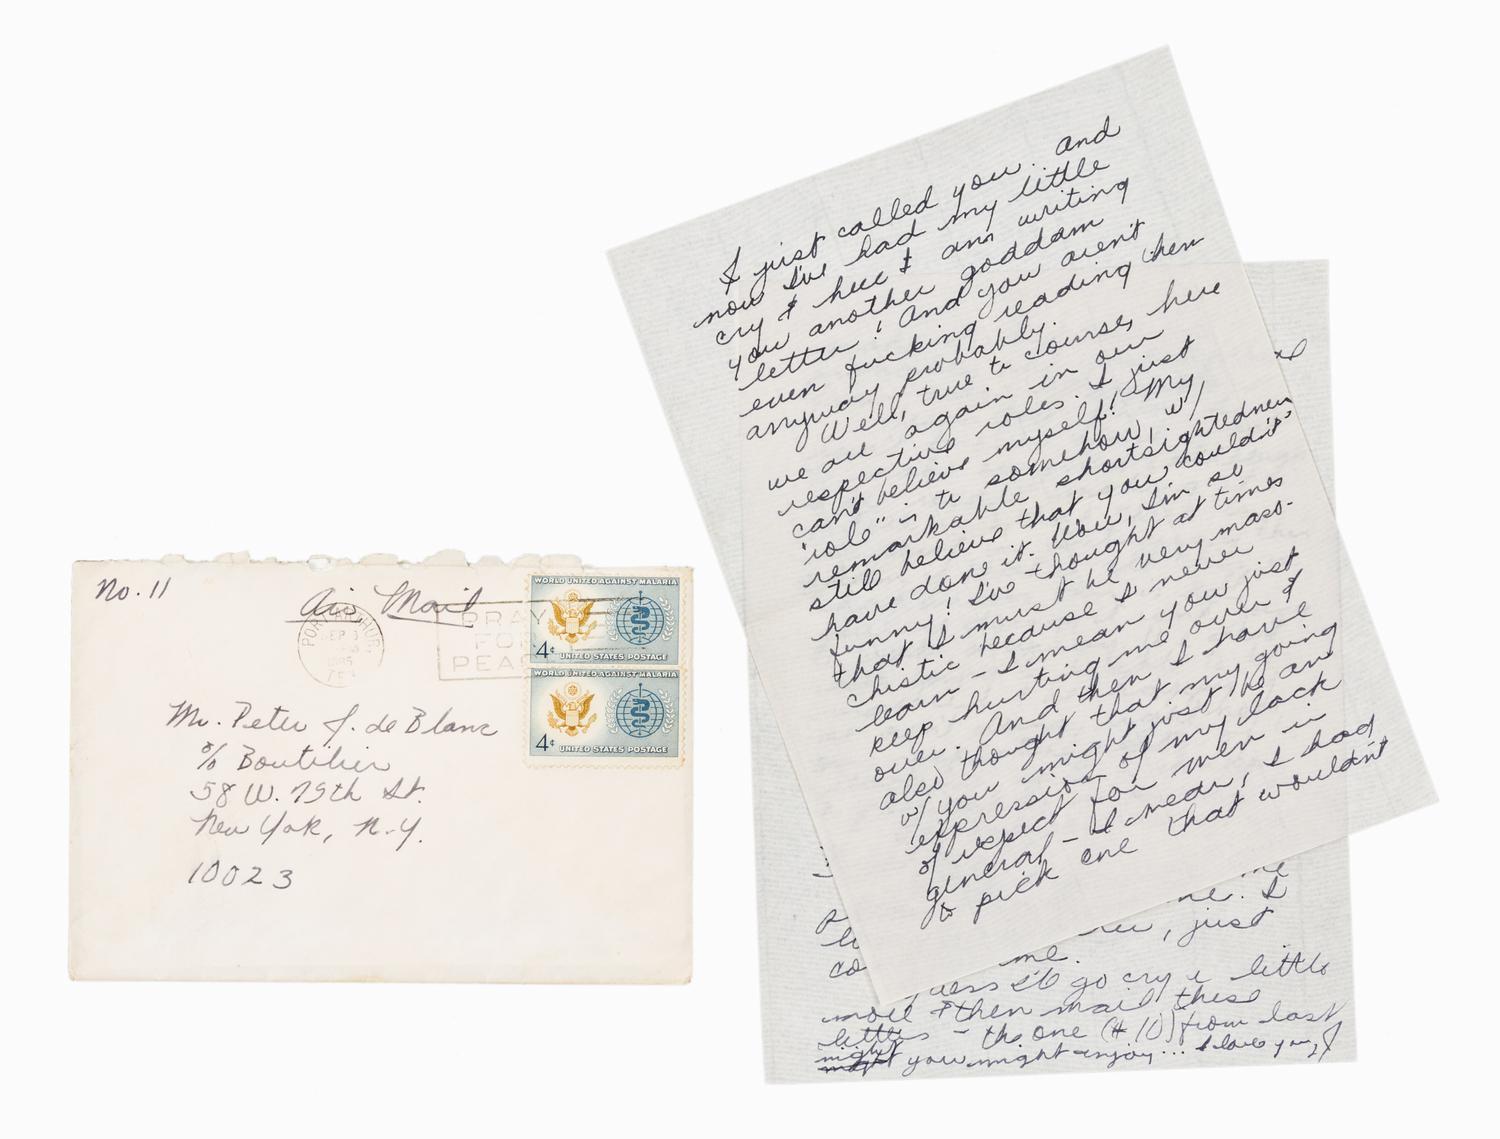 No. 11
Air Mail
PORT ARTHUR
SEP 3
1965
TEX
PRAY
FOR
PEACE
WORLD UNITED AGAINST MALARIA
4¢
UNITED STATES POSTAGE
WORLD UNITED AGAINST MALARIA
4¢
UNITED STATES POSTAGE
Mr. Peter J. de Blanc
c/o Boutilier
58 W. 75th St.
New York, N.Y.
10023
I just called you.. and
now I've had my little
cry & here I am writing
you another goddam
letter! And you aren't
even fucking reading them
anyway probably.
Well, true to course, here
we are again in our
respective roles. I just
can't believe myself! My
"role" is to somehow, w/
remarkable shortsightedness
still believe that you couldn't
have done it. Wow, I'm so
funny! I've thought at times
that I must be very maso-
chistic because I never
learn - I mean you just
keep hurting me over &
over. And then I have
also thought that my going
w/ you might just be an
expression of my lack
of respect for men in
general - I mean, I had
to pick one that wouldn't
me. I
just
me.
guess I'll go cry a little
more & then mail these
letters - the one (# 10) from last
night you might enjoy... I love you, J